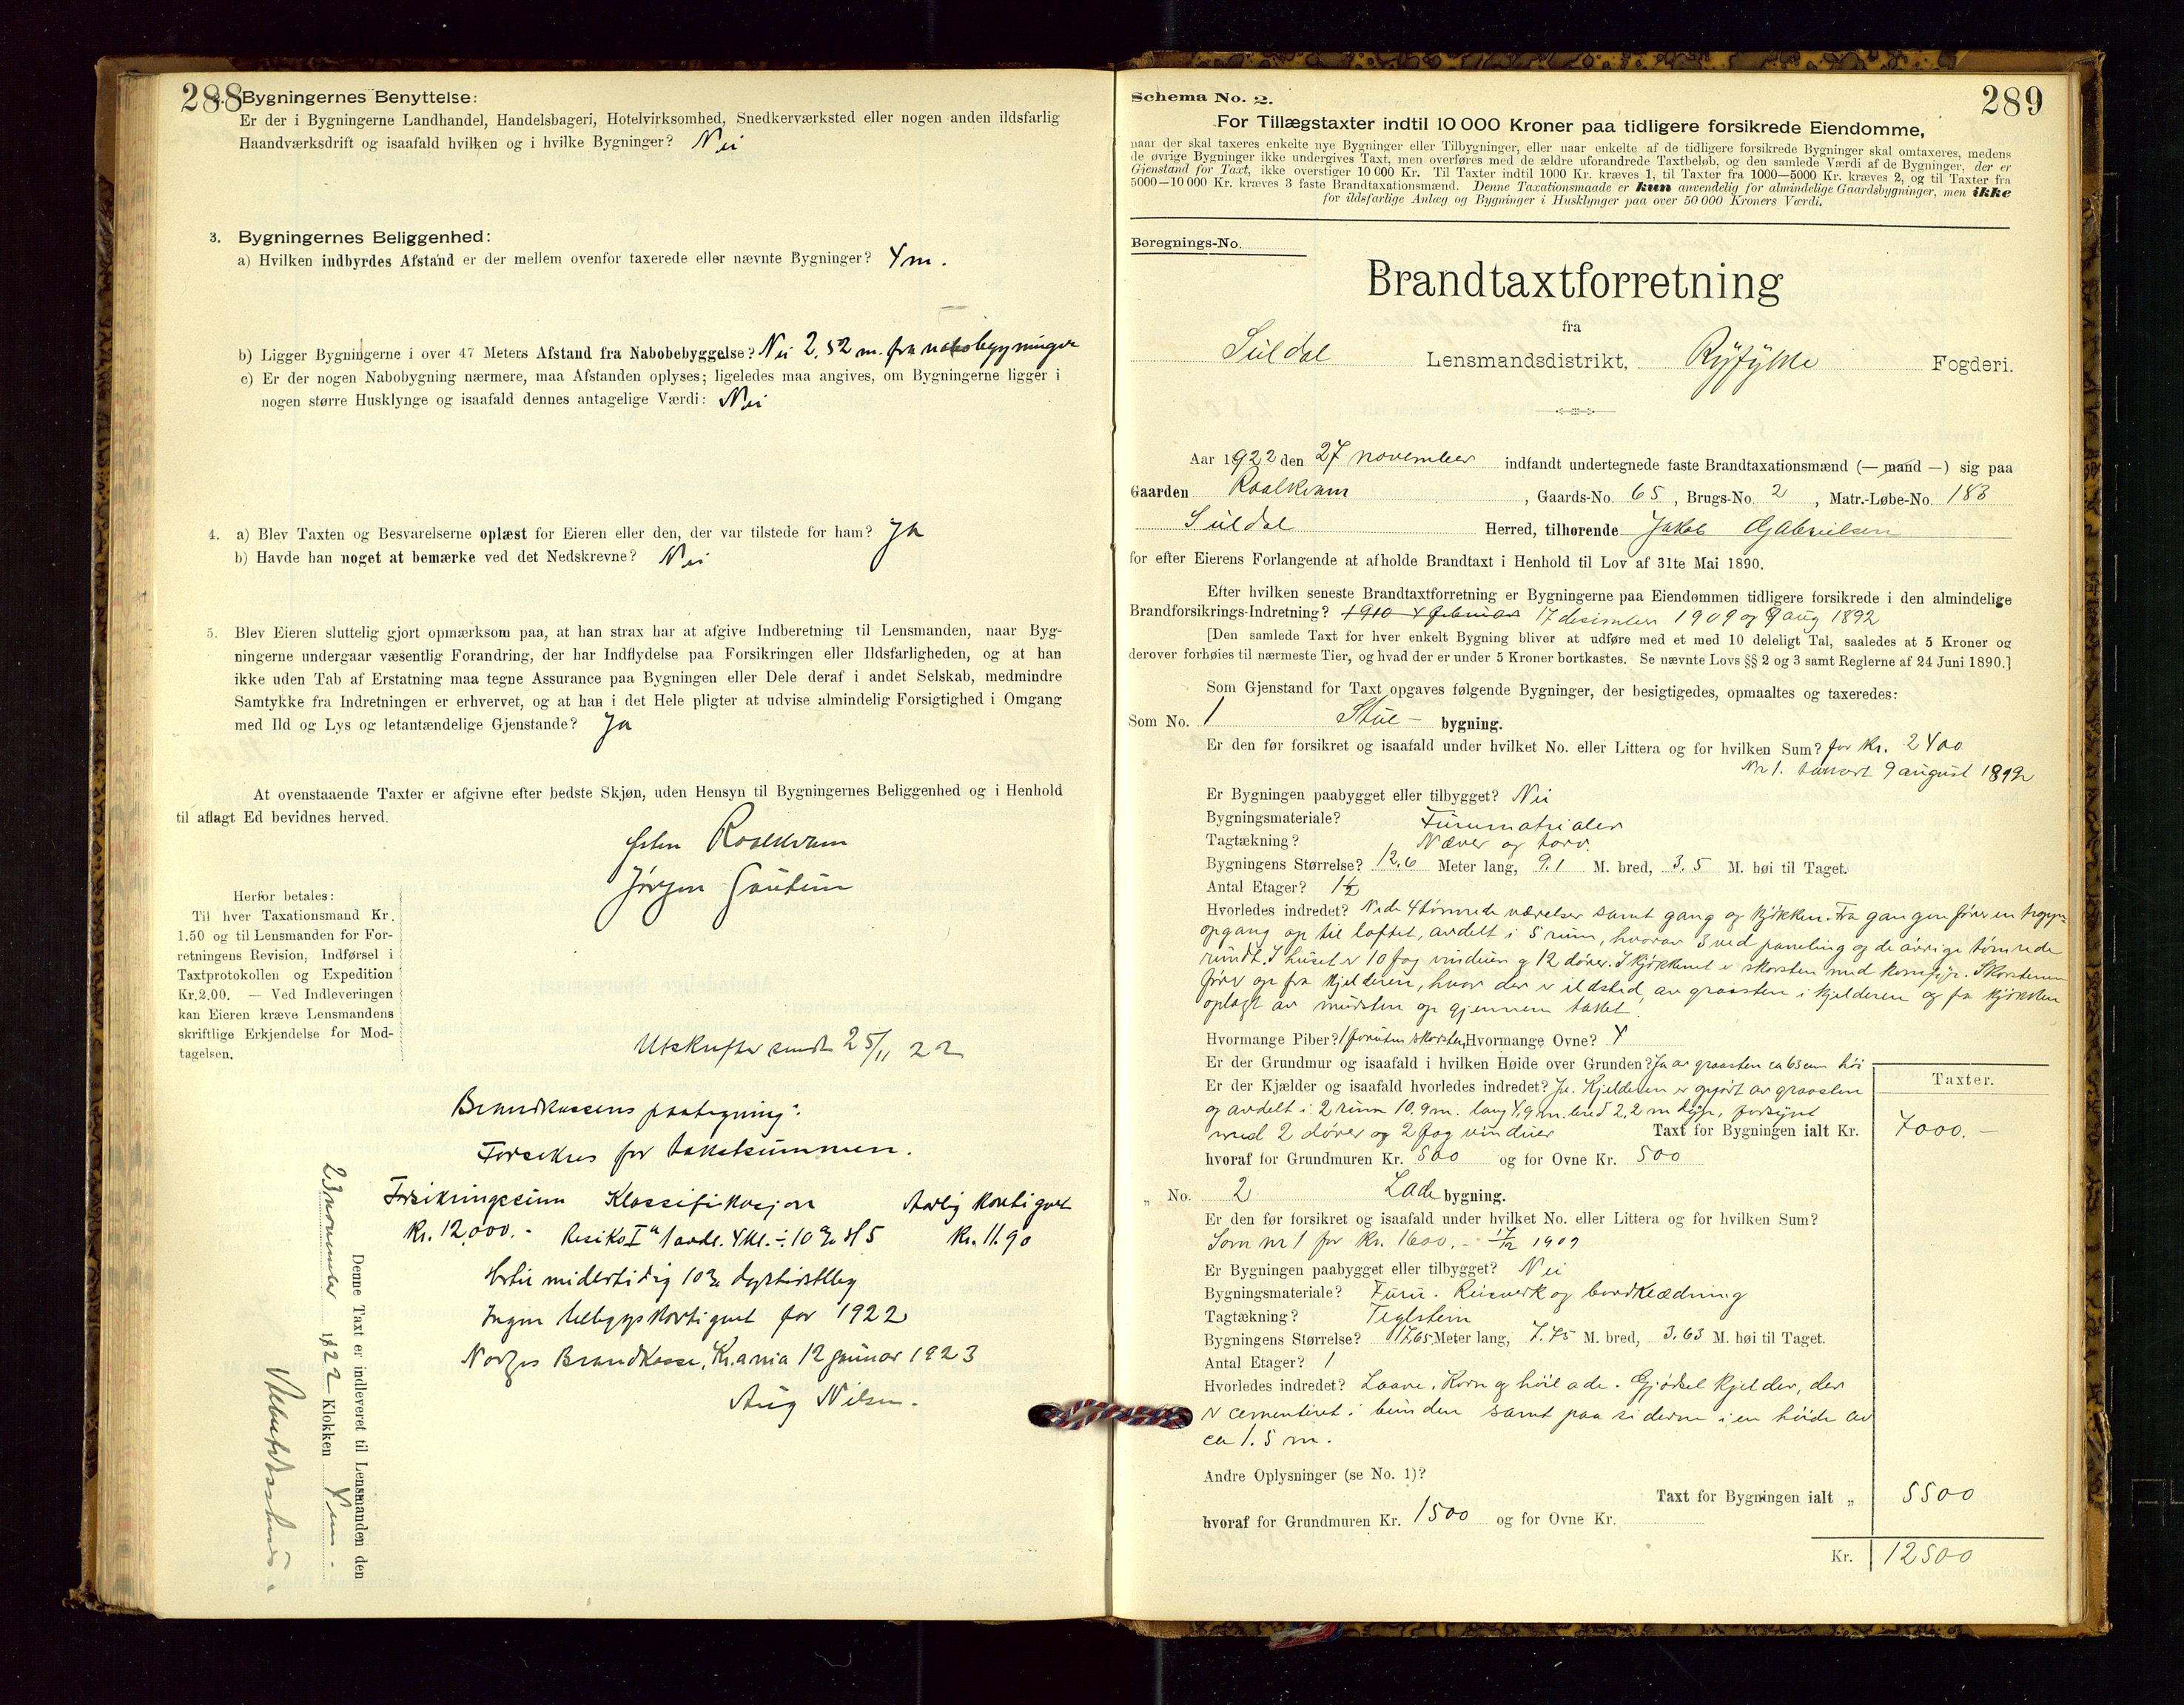 288
2. Bygningernes Benyttelse:
Er der i Bygningerne Landhandel, Handelsbageri, Hotelvirksomhed, Snedkerværksted eller nogen anden ildsfarlig
Haandværksdrift og isaafald hvilken og i hvilke Bygninger? Nei
3. Bygningernes Beliggenhed:
a) Hvilken indbyrdes Afstand er der mellem ovenfor taxerede eller nævnte Bygninger? 4 m.
b) Ligger Bygningerne i over 47 Meters Afstand fra Nabobebyggelse? Nei 2,52 m. fra nabobygninger
c) Er der nogen Nabobygning nærmere, maa Afstanden oplyses; ligeledes maa angives, om Bygningerne ligger i
nogen større Husklynge og isaafald dennes antagelige Værdi: Nei
4. a) Blev Taxten og Besvarelserne oplæst for Eieren eller den, der var tilstede for ham? Ja
b) Havde han noget at bemærke ved det Nedskrevne? Nei
5. Blev Eieren sluttelig gjort opmærksom paa, at han strax har at afgive Indberetning til Lensmanden, naar Byg-
ningerne undergaar væsentlig Forandring, der har Indflydelse paa Forsikringen eller Ildsfarligheden, og at han
ikke uden Tab af Erstatning maa tegne Assurance paa Bygningen eller Dele deraf i andet Selskab, medmindre
Samtykke fra Indretningen er erhvervet, og at han i det Hele pligter at udvise almindelig Forsigtighed i Omgang
med Ild og Lys og letantændelige Gjenstande? Ja
At ovenstaaende Taxter er afgivne efter bedste Skjøn, uden Hensyn til Bygningernes Beliggenhed og i Henhold
til aflagt Ed bevidnes herved.
Roalkvam
Jørgen
Herfor betales:
Til hver Taxationsmand Kr.
1.50 og til Lensmanden for For-
retningens Revision, Indførsel i
Taxtprotokollen og Expedition
Kr. 2.00. — Ved Indleveringen
kan Eieren kræve Lensmandens
skriftlige Erkjendelse for Mod-
tagelsen.
Utskrifter sendt 25/11 22
Brandkassens paategning:
Forsikres for takstsummen.
Forsikringssum Klassifikasjon Aarlig kontigent
Kr. 12,000.- Resiko I a 1 avde. 4 kl. ÷ 10 % H 5 Kr. 11.90
Hertil midlertidig 10% dyrtidstillæg
Ingen tillægskontigent for 1922
Norges Brandkasse, Kr.ania 12 januar 1923
Aug Nilsen.
Denne Taxt er indleveret til Lensmanden den
23 november 1922 Klokken 4 em.
289
Schema No. 2.
For Tillægstaxter indtil 10 000 Kroner paa tidligere forsikrede Eiendomme,
naar der skal taxeres enkelte nye Bygninger eller Tilbygninger, eller naar enkelte af de tidligere forsikrede Bygninger skal omtaxeres, medens
de øvrige Bygninger ikke undergives Taxt, men overføres med de ældre uforandrede Taxtbeløb, og den samlede Værdi af de Bygninger, der er
Gjenstand for Taxt, ikke overstiger 10 000 Kr. Til Taxter indtil 1000 Kr. kræves 1, til Taxter fra 1000—5000 Kr. kræves 2, og til Taxter fra
5000—10 000 Kr. kræves 3 faste Brandtaxationsmænd. Denne Taxationsmaade er kun anvendelig for almindelige Gaardsbygninger, men ikke
for ildsfarlige Anlæg og Bygninger i Husklynger paa over 50 000 Kroners Værdi.
Beregnings-No.
Brandtaxtforretning
fra
Suldal Lensmandsdistrikt, Ryfylke Fogderi.
Aar 1922 den 27 november indfandt undertegnede faste Brandtaxationsmænd (— mand —) sig paa
Gaarden Roalkvam, Gaards-No. 65, Brugs-No. 2, Matr.-Løbe-No. 183
Suldal Herred, tilhørende Jakob Gabrielsen
for efter Eierens Forlangende at afholde Brandtaxt i Henhold til Lov af 31te Mai 1890.
Efter hvilken seneste Brandtaxtforretning er Bygningerne paa Eiendommen tidligere forsikrede i den almindelige
Brandforsikrings-Indretning? 1910 4 februar 17 desember 1909 og 9 aug 1892
[Den samlede Taxt for hver enkelt Bygning bliver at udføre med et med 10 deleligt Tal, saaledes at 5 Kroner og
derover forhøies til nærmeste Tier, og hvad der er under 5 Kroner bortkastes. Se nævnte Lovs §§ 2 og 3 samt Reglerne af 24 Juni 1890.]
Som Gjenstand for Taxt opgaves følgende Bygninger, der besigtigedes, opmaaltes og taxeredes:
Som No. 1 Stue- bygning.
Er den før forsikret og isaafald under hvilket No. eller Littera og for hvilken Sum? for kr. 2400
Nr 1. taksert 9 august 1892
Er Bygningen paabygget eller tilbygget? Nei
Bygningsmateriale? Furumatrialer
Tagtækning? Næver og torv.
Bygningens Størrelse? 12,6 Meter lang, 9.1 M. bred, 3.5 M. høi til Taget.
Antal Etager? 1½
Hvorledes indredet? Nede 4 tømrede værelser samt gang og kjøkken. Fra gangen fører en trappe-
opgang op til loftet, avdelt i 5 rum, hvorav 3 ved paneling og de øvrige tømrede
rundt. I huset er 10 fag vinduer og 12 dører. I kjøkkenet er skorsten med komfyr. Skorstenen
fører op fra kjelderen, hvor der er ildsted, av graasten i kjelderen og fra kjøkken
oplagt av mursten op gjennem taket.
Hvormange Piber? 1 foruten skorsten, Hvormange Ovne? 4
Er der Grundmur og isaafald i hvilken Høide over Grunden? Ja av graasten ca 63 cm høi
Er der Kjælder og isaafald hvorledes indredet? Ja. Kjelderen er opført av graasten
og avdelt i 2 rum 10,9 m. lang 4,9 m. bred 2,2 m dyp, forsynt
med 2 dører og 2 fag vinduer Taxt for Bygningen ialt Kr.
Taxter.
7000.—
hvoraf for Grundmuren Kr. 500 og for Ovne Kr. 500
„ No. 2 Lade bygning.
Er den før forsikret og isaafald under hvilket No. eller Littera og for hvilken Sum?
Som nr 1 for kr. 1600.- 17/12 1909
Er Bygningen paabygget eller tilbygget? Nei
Bygningsmateriale? Furu. Reisverk og bordklædning
Tagtækning? Teglstein
Bygningens Størrelse? 17,65 Meter lang, 7.75 M. bred, 3.63 M. høi til Taget.
Antal Etager? 1
Hvorledes indredet? Laave. Korn og høilade. Gjødsel kjelder, der
er cementeret i bunden samt paa siderne i en høide av
ca 1.5 m.
Andre Oplysninger (se No. 1)?
Taxt for Bygningen ialt „ 5500
hvoraf for Grundmuren Kr. 1500 og for Ovne Kr.
Kr. 12500